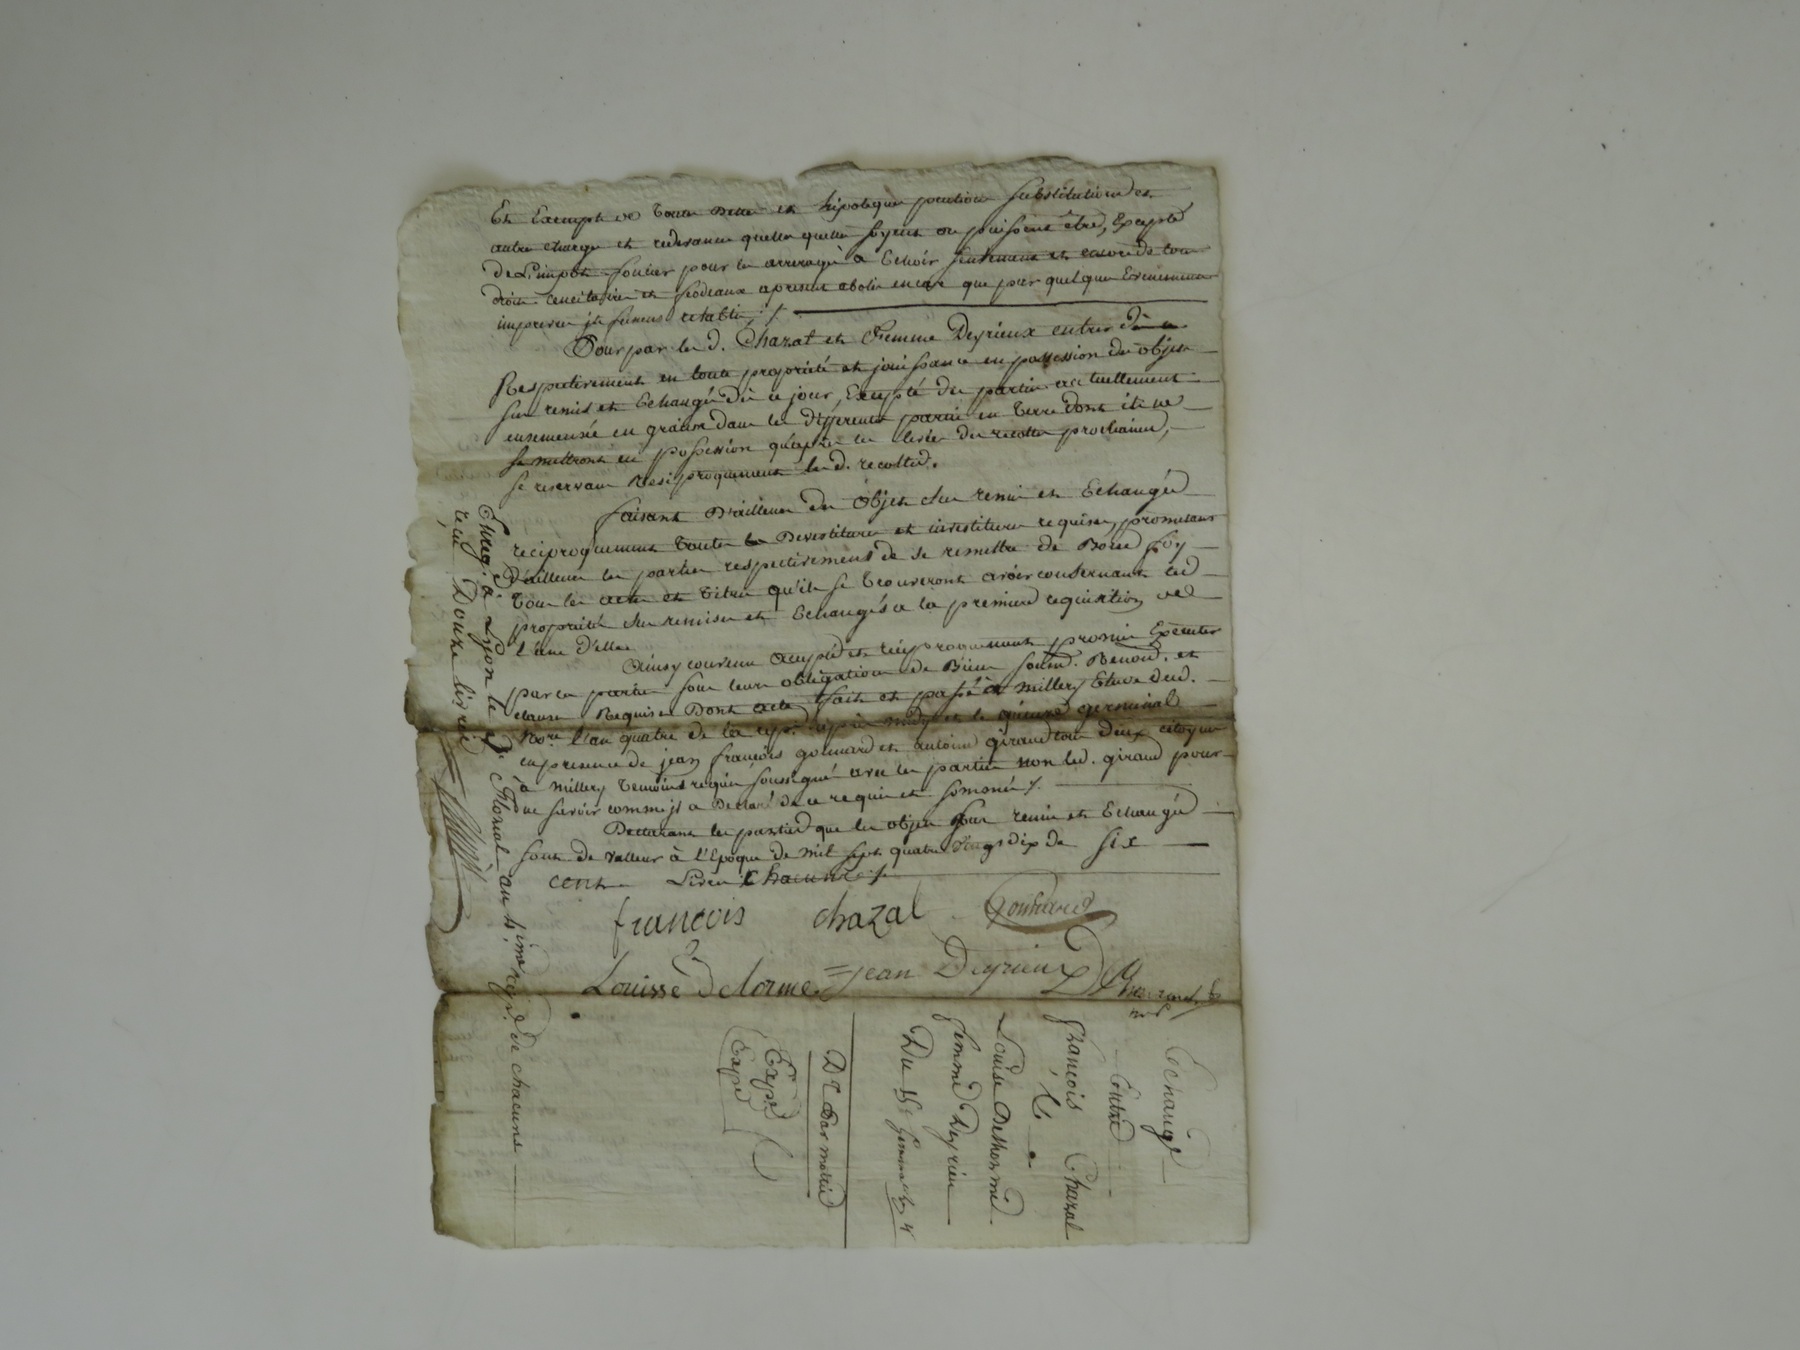 Et Exempt de toutte dette et hipoteque pention substitutiond et
autre charge et redevance quelles quelles soyent ou puissent être, Excepté
de L'impôt foncier pour les arrerages à Echoir seulement et encore de tous
droits Sencitaires et feodeaux apresent abolis encore que par quelques Evenement
imprevus ils fussent retablis ./.
Pour par les d. Chazal et Femme Deyrieux entrer dès a
Respectivement en toute propriété et jouissance en possession des objets
sus remis et Echangés dès ce jour, Excepté des parties actuellement
ensemencée en graine dans les differentes partie en terre dont ils ne
se mettront en possession qu'après la levée des recoltes prochaines,
se reservant Resiproquement les d. recoltes.
faisant D'ailleurs des objets sus remis et Echangés
reciproquement toutes les Devestitures et investitures requises, promettant
D'ailleurs les parties respectivement de se remettre de Bonne foy
tous les actes et titres qu'ils se trouveront avoir consernant les d
proprietés sus remises et Echangés a la premiere requisition de
l'une D'elles
Ainsy convenu accepté et réciproquement promis Executer
par les parties sous leurs obligations de Biens soum. Renon. et
clauses Requises Dont acte fait et passé à Millery Etude dud.
No.re l'an quatre de la rep. après midy et le quinze germinal
en presence de jean françois gonnard et antoine giraud tous deux citoyens
à Millery temoins requis soussigné avec les parties non led. giraud pour
ne savoir comme il a Declaré de ce requis et somomé ./.
Declarant les parties que les objets sur remis et Echangés
sont de valleur à l'Epoque de mil sept quatre vingt dix de six
cents Livres Chacune ./.
françois chazal Gonnard
Louisse delorme = jean Deyrieux
Enreg. à Lyon le
de floreal an 4.ime rep. de chacuns
reçu Douze livres
Echange
Entre
François Chazal
&
Louise Delhorme
femme Deyrieu
Du 15 germinal an 4
Dt Par moitié
Exp.é
Exp.é